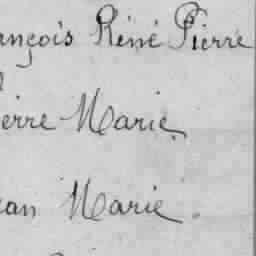 ançois Réné Pierre
ierre Marie
ean Marie.